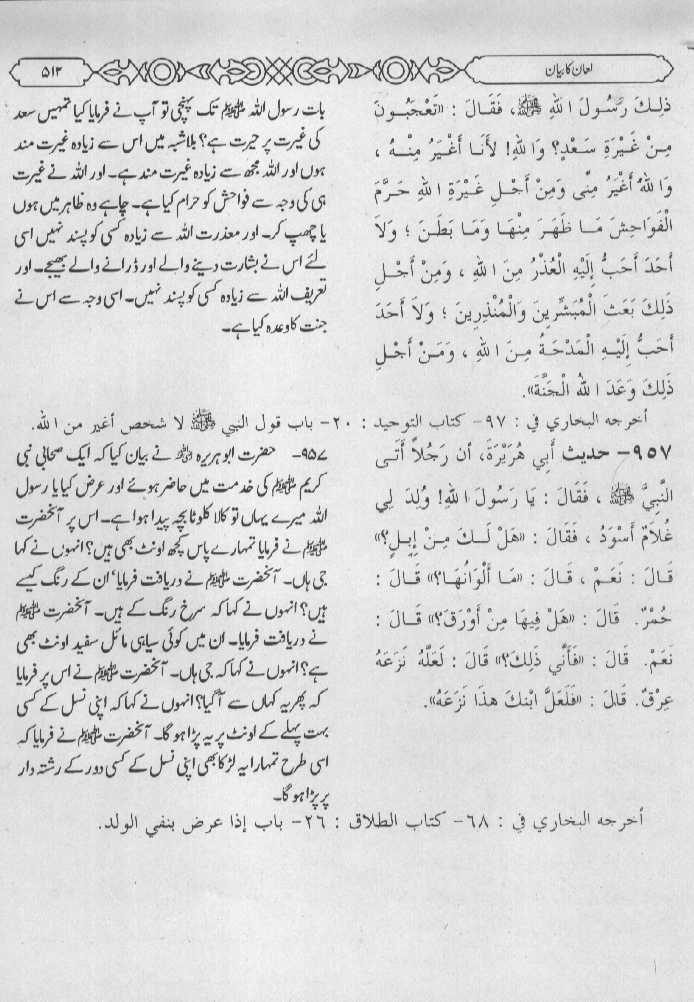 لعان کا بیان
۵۱۲
ذلِكَ رَسُولَ اللهِ ﷺ، فَقَالَ : «تَعْجَبُونَ
مِنْ غَيْرَةِ سَعْدٍ؟ وَاللهِ! لأَنَا أَغْيَرُ مِنْهُ ،
وَاللهُ أَغْيَرُ مِنِّى وَمِنْ أَجْلِ غَيْرَةِ اللهِ حَرَّمَ
الْفَوَاحِشَ مَا ظَهَرَ مِنْهَا وَمَا بَطَنَ ؛ وَلاَ
أَحَدَ أَحَبُّ إِلَيْهِ الْعُذْرُ مِنَ اللهِ ، وَمِنْ أَجْلِ
ذلِكَ بَعَثَ الْمُبَشِّرِينَ وَالْمُنْذِرِينَ ؛ وَلاَ أَحَدَ
أَحَبُّ إِلَيْهِ الْمَدْحَةُ مِنَ اللهِ ، وَمَنْ أَجْلِ
ذلِكَ وَعَدَ اللهُ الْجَنَّةَ».
بات رسول اللہ ﷺ تک پہنچی تو آپ نے فرمایا کیا تمہیں سعد
کی غیرت پر حیرت ہے؟ بلاشبہ میں اس سے زیادہ غیرت مند
ہوں اور اللہ مجھ سے زیادہ غیرت مند ہے۔ اور اللہ نے غیرت
ہی کی وجہ سے فواحش کو حرام کیا ہے۔ چاہے وہ ظاہر میں ہوں
یا چھپ کر۔ اور معذرت اللہ سے زیادہ کسی کو پسند نہیں اسی
لئے اس نے بشارت دینے والے اور ڈرانے والے بھیجے۔ اور
تعریف اللہ سے زیادہ کسی کو پسند نہیں۔ اسی وجہ سے اس نے
جنت کا وعدہ کیا ہے۔
أخرجه البخاري في : ٩٧- كتاب التوحيد : ٢٠- باب قول النبي ﷺ لا شخص أغير من الله.
٩٥٧- حديث أَبِي هُرَيْرَةَ، أن رَجُلاً أَتَى
النَّبِيَّ ﷺ ، فَقَالَ : يَا رَسُولَ اللهِ! وُلِدَ لِي
غُلاَمٌ أَسْوَدُ ، فَقَالَ : «هَلْ لَكَ مِنْ إِبِلٍ؟»
قَالَ : نَعَمْ ، قَالَ : «مَا أَلْوَانُهَا؟» قَالَ :
حُمْرٌ. قَالَ : «هَلْ فِيهَا مِنْ أَوْرَقَ؟» قَالَ :
نَعَمْ. قَالَ : «فَأَنّي ذَلِكَ؟» قَالَ : لَعَلَّهُ نَزَعَهُ
عِرْقٌ. قَالَ : «فَلَعَلَّ ابْنَكَ هذَا نَزَعَهُ».
۹۵۷- حضرت ابو ہریرہ ؓ نے بیان کیا کہ ایک صحابی نبی
کریم ﷺ کی خدمت میں حاضر ہوئے اور عرض کیا یا رسول
اللہ میرے یہاں تو کالا کلوٹا بچہ پیدا ہوا ہے۔ اس پر آنحضرت
ﷺ نے فرمایا تمہارے پاس کچھ اونٹ بھی ہیں؟ انہوں نے کہا
جی ہاں۔ آنحضرت ﷺ نے دریافت فرمایا‘ ان کے رنگ کیسے
ہیں؟ انہوں نے کہا کہ سرخ رنگ کے ہیں۔ آنحضرت ﷺ
نے دریافت فرمایا۔ ان میں کوئی سیاہی مائل سفید اونٹ بھی
ہے؟ انہوں نے کہا کہ جی ہاں۔ آنحضرت ﷺ نے اس پر فرمایا
کہ پھر یہ کہاں سے آ گیا؟ انہوں نے کہا کہ اپنی نسل کے کسی
بہت پہلے کے اونٹ پر یہ پڑا ہو گا۔ آنحضرت ﷺ نے فرمایا کہ
اسی طرح تمہارا یہ لڑکا بھی اپنی نسل کے کسی دور کے رشتہ دار
پر پڑا ہو گا۔
أخرجه البخاري في : ٦٨- كتاب الطلاق : ٢٦- باب إذا عرض بنفي الولد.